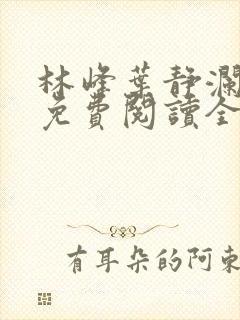 林峰葉靜瀾
免費閱讀全
有耳朵的阿東